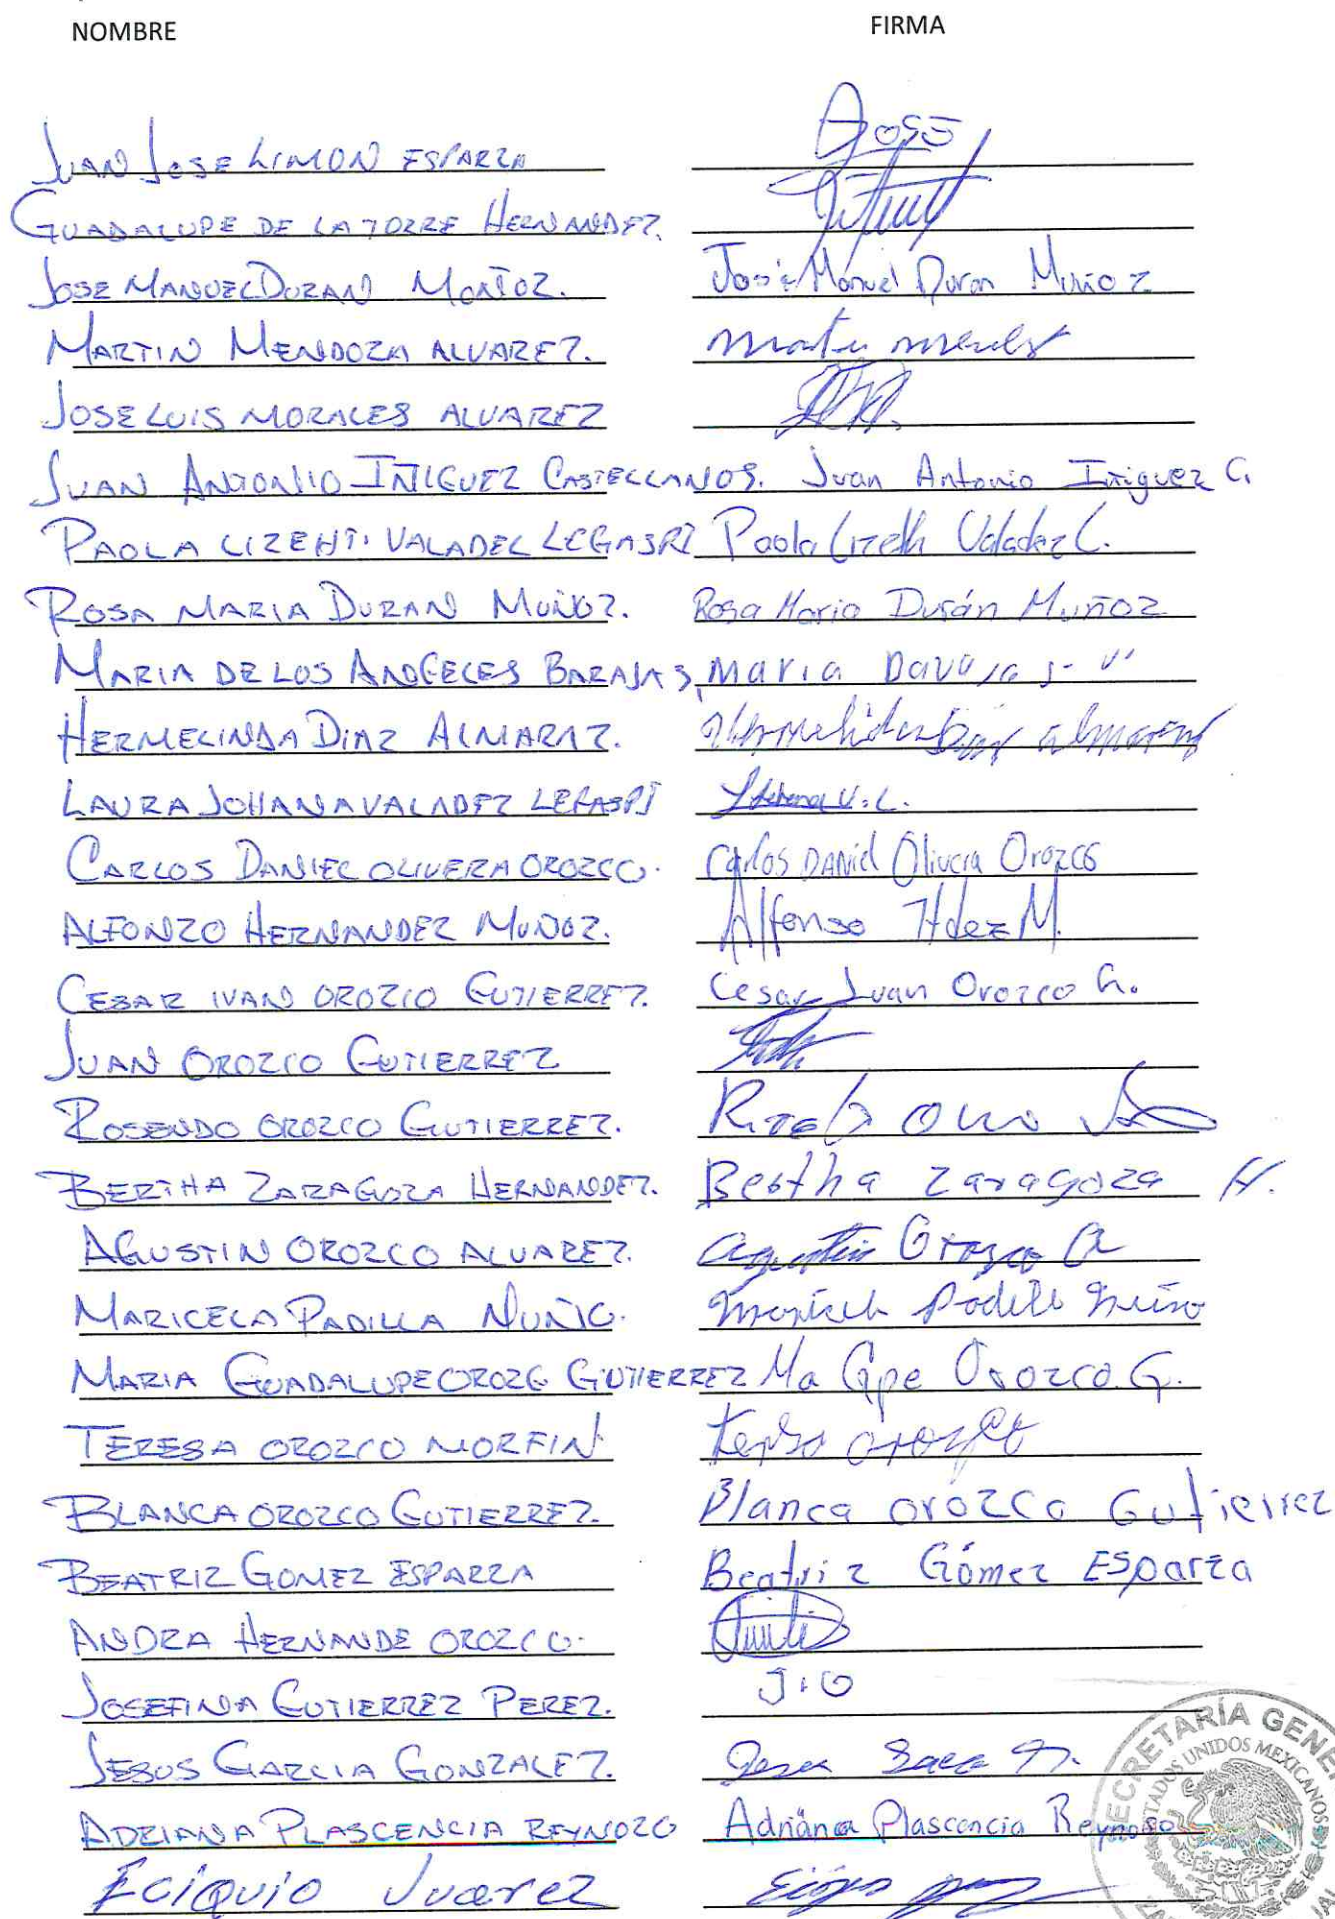 NOMBRE FIRMA
JUAN JOSE LIMON ESPARZA JOSE
GUADALUPE DE LA TORRE HERNANDEZ.
JOSE MANUEL DURAN MOÑOZ. José Manuel Duran Muñoz
MARTIN MENDOZA ALVAREZ.
JOSE LUIS MORALES ALVAREZ
JUAN ANTONIO IÑIGUEZ CASTELLANOS. Juan Antonio Iñiguez C.
PAOLA LIZEHT. VALADEZ LEGASPI Paola Lizeth Valadez L.
ROSA MARIA DURAN MUÑOZ. Rosa Maria Durán Muñoz
MARIA DE LOS ANGELES BARAJAS, Maria
HERMELINDA DIAZ ALMARAZ. almaraz
LAURA JOHANA VALADEZ LEGASPI Johana V.L.
CARLOS DANIEL OLIVERA OROZCO. Carlos Daniel Olivera Orozco
ALFONZO HERNANDEZ MUÑOZ. Alfonso Hdez M.
CESAR IVAN OROZCO GUTIERREZ. Cesar Ivan Orozco G.
JUAN OROZCO GUTIERREZ
ROSENDO OROZCO GUTIERREZ.
BERTHA ZARAGOZA HERNANDEZ. Bertha Zaragoza H.
AGUSTIN OROZCO ALVAREZ. Agustin Orozco A
MARICELA PADILLA NUÑO. Padilla Nuño
MARIA GUADALUPE OROZCO GUTIERREZ Ma Gpe Orozco. G.
TERESA OROZCO MORFIN Orozco
BLANCA OROZCO GUTIERREZ. Blanca orozco Gutierrez
BEATRIZ GOMEZ ESPARZA Beatriz Gómez Esparza
ANDREA HERNANDE OROZCO.
JOSEFINA GUTIERREZ PEREZ. J.G
JESUS GARCIA GONZALEZ.
ADRIANA PLASCENCIA REYNOZO Adriana Plascencia Reynoso
Eciquio Juarez
SECRETARÍA GENERAL
ESTADOS UNIDOS MEXICANOS